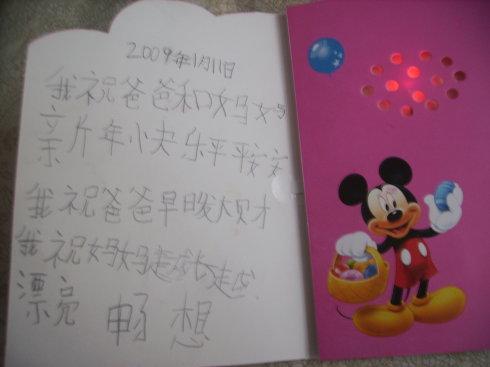 2009年1月11日
我祝爸爸和妈妈
新年快乐平平安安
我祝爸爸早日发大财
我祝妈妈越长越
漂亮 畅想